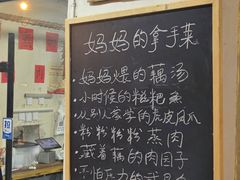 妈妈的拿手菜
·妈妈煨的藕汤
·小时候的糍粑鱼
·从别人家学的虎皮凤爪
·粉粉粉粉蒸肉
·藏着藕的肉圆子
·不怕压力的